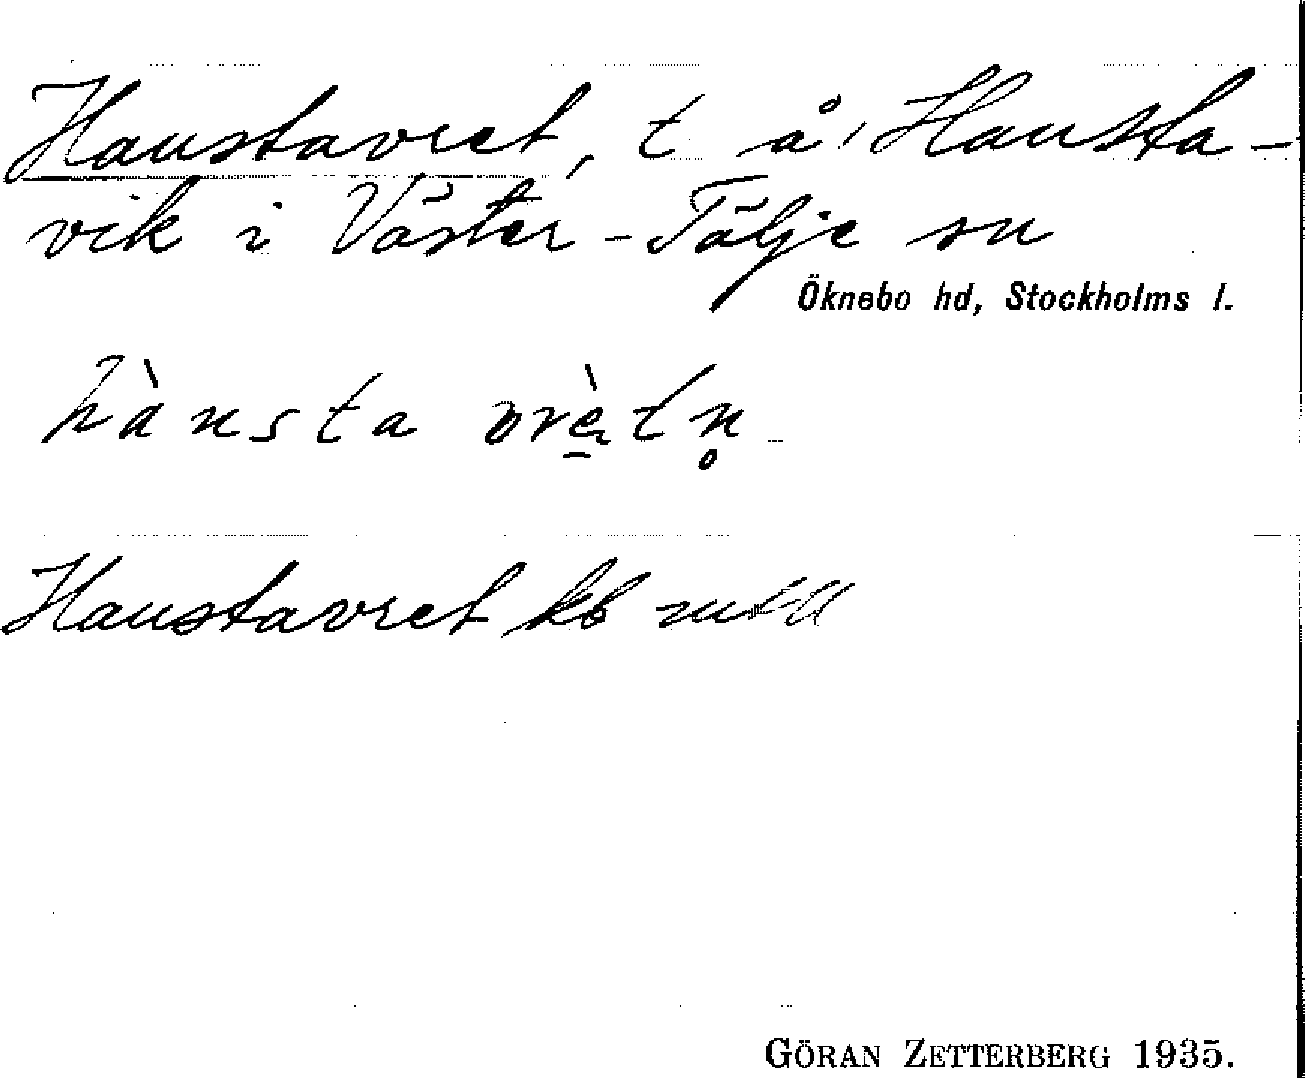 Hanstavret, t å, Hansta-
vik i Väster-Tälje sn
Öknebo hd, Stockholms l.
hànsta vrètn̥
Hanstavret kb
GÖRAN ZETTERBERG 1935.